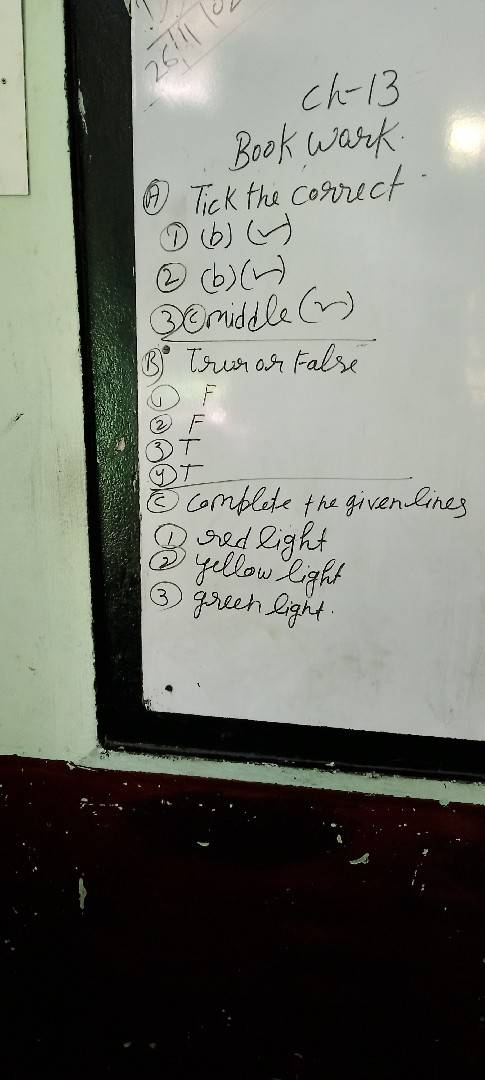 Ch-13
Book Wark.
(A) Tick the correct
(1) (b) (✓)
(2) (b) (✓)
(3) (c) middle (✓)
(B) Trur or False
(1) F
(2) F
(3) T
(4) T
(C) Complete the given lines
(1) red light
(2) yellow light
(3) green light.